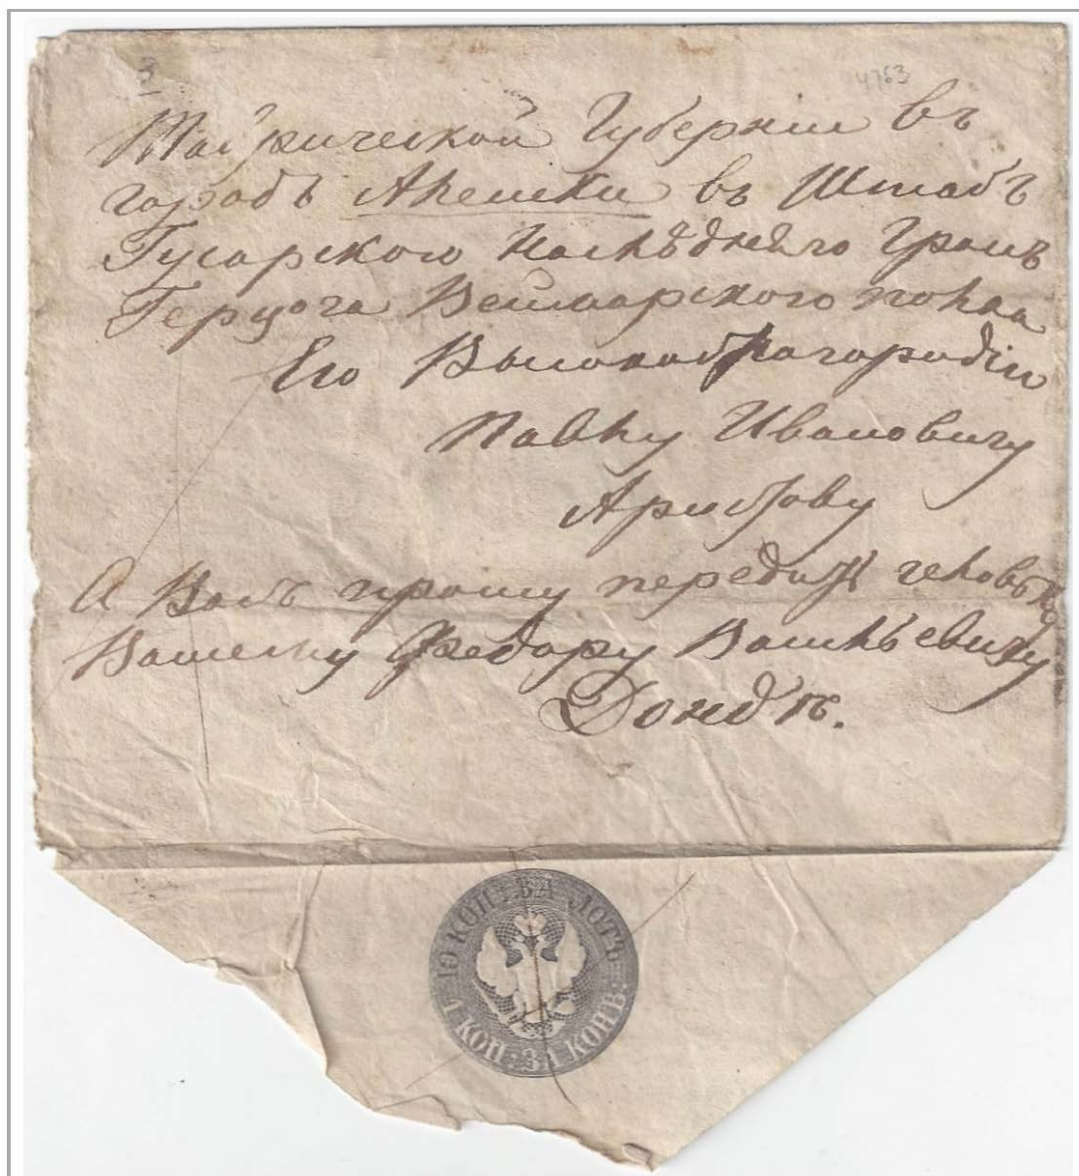 3
4763
Таврической Губернiи въ
городъ Алешки въ Штабъ
Гусарского Наслѣдняго Гросъ
Герцога Веймарского полка
Его Высокоблагородiю
Павлу Ивановичу
А Васъ прошу передать человѣку
Вашему Федору Василъевичу
10 КОП: ЗА ЛОТЪ
1 КОП. ЗА КОНВ: